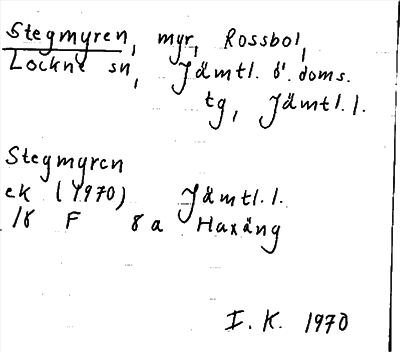 Stegmyren, myr, Rossbol,
Lockne sn, Jämtl. ö. doms.
tg, Jämtl. l.
Stegmyren
ek (1970) Jämtl. l.
18 F 8 a Haxäng
I. K. 1970